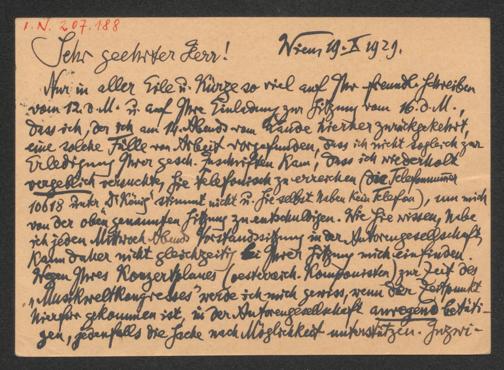 I.N. 207.188
Sehr geehrter Herr! Wien, 19.X.1929.
Nur in aller Eile u. Kürze so viel auf Ihr freundl. Schreiben
vom 12. d. M. u. auf Ihre Einladung zur Sitzung vom 16. d. M.,
dass ich, der ich am 14. Abends vom Lande hierher zurückgekehrt,
eine solche Fülle von Arbeit vorgefunden, dass ich nicht sogleich zur
Erledigung Ihrer gesch. Zuschriften kam, dass ich wiederholt
vergeblich versuchte, Sie telefonisch zu erreichen (die Telefonnummer
10618 unter "Dr König" stimmt nicht u. Sie selbst haben kein Telefon), um mich
von der oben genannten Sitzung zu entschuldigen. Wie Sie wissen, habe
ich jeden Mittwoch Abend Vorstandssitzung in der Autorengesellschaft,
kann daher nicht gleichzeitig bei Ihrer Sitzung mich einfinden.
Wegen Ihres Konzertplanes (oesterreich. Komponisten) zur Zeit des
"Musikweltkongresses" werde ich mich gewiss, wenn der Zeitpunkt
hierfür gekommen ist, in der Autorengesellschaft anregend betäti-
gen, jedenfalls die Sache nach Möglichkeit unterstützen. Inzwi-